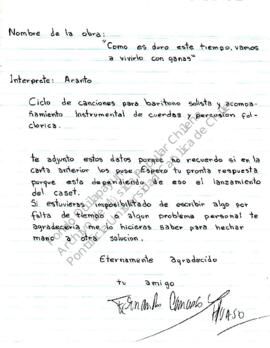 Nombre de la obra:
"Como es duro este tiempo, vamos
a vivirlo con ganas"
Interprete: Aranto
Ciclo de canciones para baritono solista y acompa-
ñamiento Instrumental de cuerdas y percusion fol-
clorica.
te adjunto estos datos porque no recuerdo si en la
carta anterior los puse. Espero tu pronta respuesta
porque esta dependiendo de eso el lanzamiento
del caset.
Si estuvieras imposibilitado de escribir algo por
falta de tiempo o algun problema personal te
agradeceria me lo hicieras saber para hechar
mano a otra solucion.
Eternamente agradecido
tu amigo
Fernando